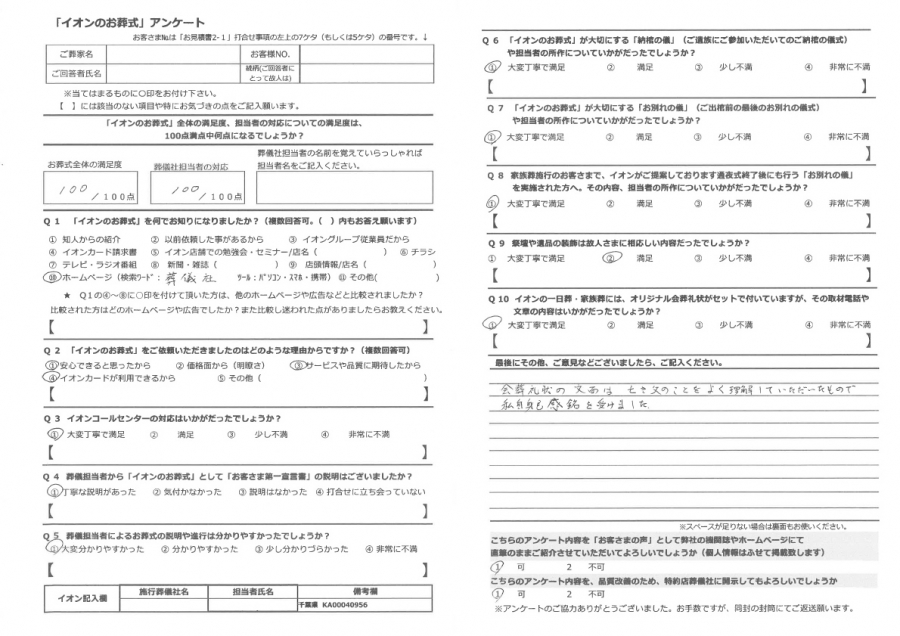 「イオンのお葬式」アンケート
お客さま№は「お見積書2-1」打合せ事項の左上の7ケタ（もしくは5ケタ）の番号です。↓
ご葬家名
お客様NO.
ご回答者氏名
続柄(ご回答者にとって故人は)
※当てはまるものに○印をお付け下さい。
【 】には該当のない項目や特にお気づきの点をご記入願います。
「イオンのお葬式」全体の満足度、担当者の対応についての満足度は、
100点満点中何点になるでしょうか？
お葬式全体の満足度
葬儀社担当者の対応
葬儀社担当者の名前を覚えていらっしゃれば
担当者名をご記入ください。
100 /100点
100 /100点
Q 1 「イオンのお葬式」を何でお知りになりましたか？（複数回答可。( ）内もお答え願います）
① 知人からの紹介 ② 以前依頼した事があるから ③ イオングループ従業員だから
④ イオンカード請求書 ⑤ イオン店舗での勉強会・セミナー/店名（ ） ⑥ チラシ
⑦ テレビ・ラジオ番組 ⑧ 新聞・雑誌（ ） ⑨ 店頭情報/店名（ ）
⑩ ホームページ（検索ワード： 葬儀社 ツール：パソコン・スマホ・携帯） ⑪ その他( )
★ Q1の④～⑧に○印を付けて頂いた方は、他のホームページや広告などと比較されましたか？
比較された方はどのホームページや広告でしたか？また比較し迷われた点がありましたらお教えください。
【 】
Q 2 「イオンのお葬式」をご依頼いただきましたのはどのような理由からですか？（複数回答可）
①安心できると思ったから ② 価格面から（明瞭さ） ③サービスや品質に期待したから
④イオンカードが利用できるから ⑤ その他（ ）
【 】
Q 3 イオンコールセンターの対応はいかがだったでしょうか？
① 大変丁寧で満足 ② 満足 ③ 少し不満 ④ 非常に不満
【 】
Q 4 葬儀担当者から「イオンのお葬式」として「お客さま第一宣言書」の説明はございましたか？
①丁寧な説明があった ② 気付かなかった ③ 説明はなかった ④ 打合せに立ち会っていない
【 】
Q 5 葬儀担当者によるお葬式の説明や進行は分かりやすかったでしょうか？
①大変分かりやすかった ② 分かりやすかった ③ 少し分かりづらかった ④ 非常に不満
【 】
イオン記入欄
施行葬儀社名
担当者氏名
備考欄
千葉県 KA00040956
Q 6 「イオンのお葬式」が大切にする「納棺の儀」（ご遺族にご参加いただいてのご納棺の儀式）
や担当者の所作についていかがだったでしょうか？
① 大変丁寧で満足 ② 満足 ③ 少し不満 ④ 非常に不満
【 】
Q 7 「イオンのお葬式」が大切にする「お別れの儀」（ご出棺前の最後のお別れの儀式）
や担当者の所作についていかがだったでしょうか？
① 大変丁寧で満足 ② 満足 ③ 少し不満 ④ 非常に不満
【 】
Q 8 家族葬施行のお客さまで、イオンがご提案しております通夜式終了後にも行う「お別れの儀」
を実施された方へ。その内容、担当者の所作についていかがだったでしょうか？
① 大変丁寧で満足 ② 満足 ③ 少し不満 ④ 非常に不満
【 】
Q 9 祭壇や遺品の装飾は故人さまに相応しい内容だったでしょうか？
① 大変丁寧で満足 ② 満足 ③ 少し不満 ④ 非常に不満
【 】
Q 10 イオンの一日葬・家族葬には、オリジナル会葬礼状がセットで付いていますが、その取材電話や
文章の内容はいかがだったでしょうか？
① 大変丁寧で満足 ② 満足 ③ 少し不満 ④ 非常に不満
【 】
最後にその他、ご意見などございましたら、ご記入ください。
会葬礼状の文面は 亡き父のことをよく理解していただいたもので
私自身も感銘を受けました。
※スペースが足りない場合は裏面もお使いください。
こちらのアンケート内容を「お客さまの声」として弊社の機関誌やホームページにて
直筆のままご紹介させていただいてよろしいでしょうか（個人情報はふせて掲載致します）
1 可 2 不可
こちらのアンケート内容を、品質改善のため、特約店葬儀社に開示してもよろしいでしょうか
1 可 2 不可
※アンケートのご協力ありがとうございました。お手数ですが、同封の封筒にてご返送願います。